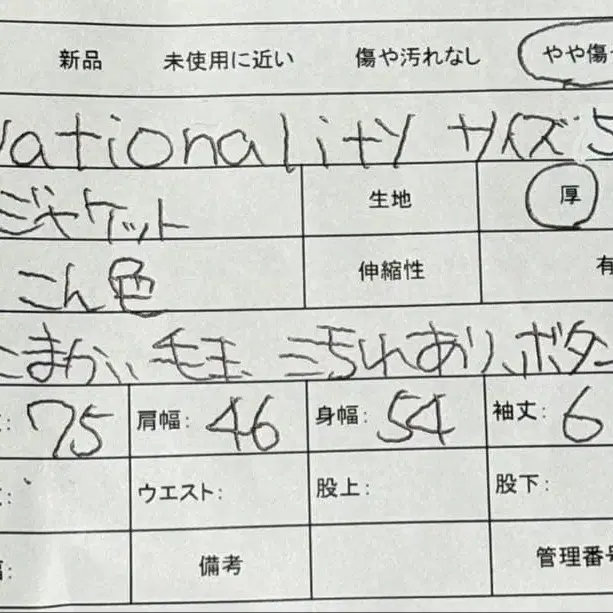 新品 未使用に近い 傷や汚れなし やや傷
Nationality サイズ
ジャケット 生地 厚
こん色 伸縮性 有
こまかい毛玉 こちれあり、ボタン
75 肩幅: 46 身幅: 54 袖丈: 6
ウエスト: 股上: 股下:
備考 管理番号